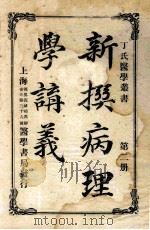 丁氏醫學叢書
第一册
新撰病理
學講義
上海
醫學書局發行